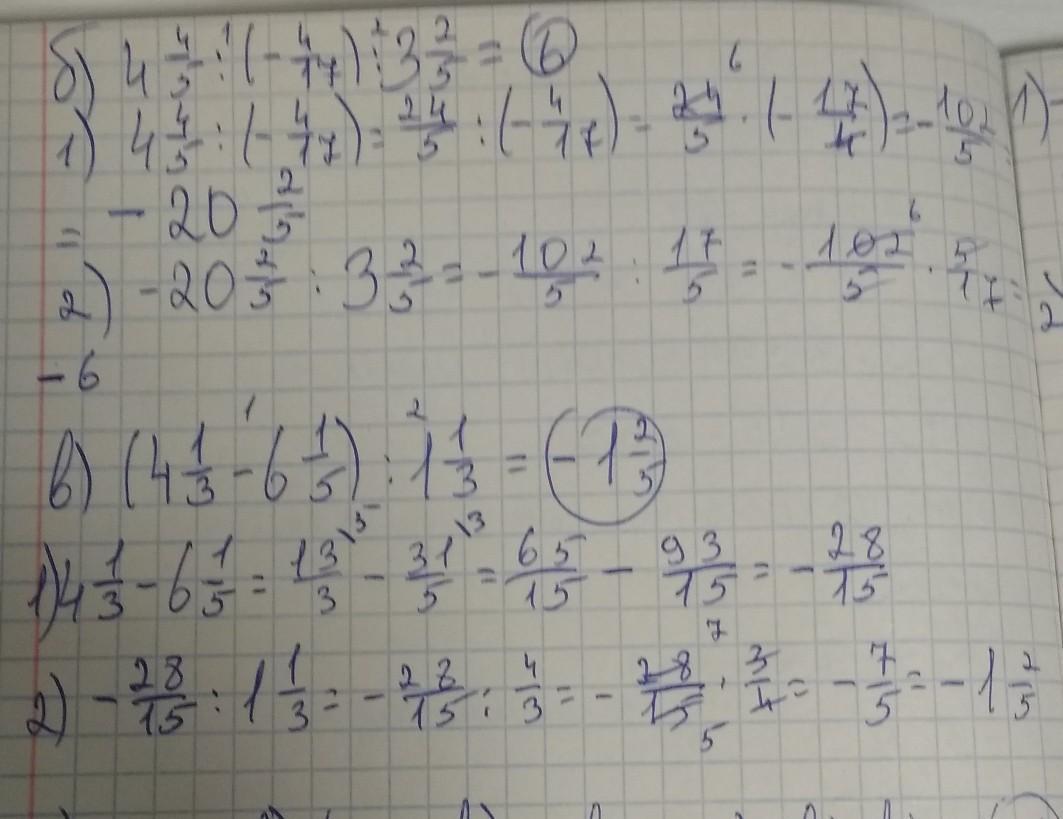 б) 4 4/5 :¹ (- 4/17) :² 3 2/5 = 6
1) 4 4/5 : (- 4/17) = 24/5 : (- 4/17) = 24⁶/5 · (- 17/4) = - 102/5 =
= - 20 2/5
2) - 20 2/5 : 3 2/5 = - 102/5 : 17/5 = - 102⁶/5 · 5/17 =
- 6
в) (4 1/3 -¹ 6 1/5) :² 1 1/3 = - 1 2/5
1) 4 1/3 - 6 1/5 = 13/3 \5 - 31/5 \3 = 65/15 - 93/15 = - 28/15
2) - 28/15 : 1 1/3 = - 28/15 : 4/3 = - 28⁷/15₅ · 3/4 = - 7/5 = - 1 2/5
1)
2